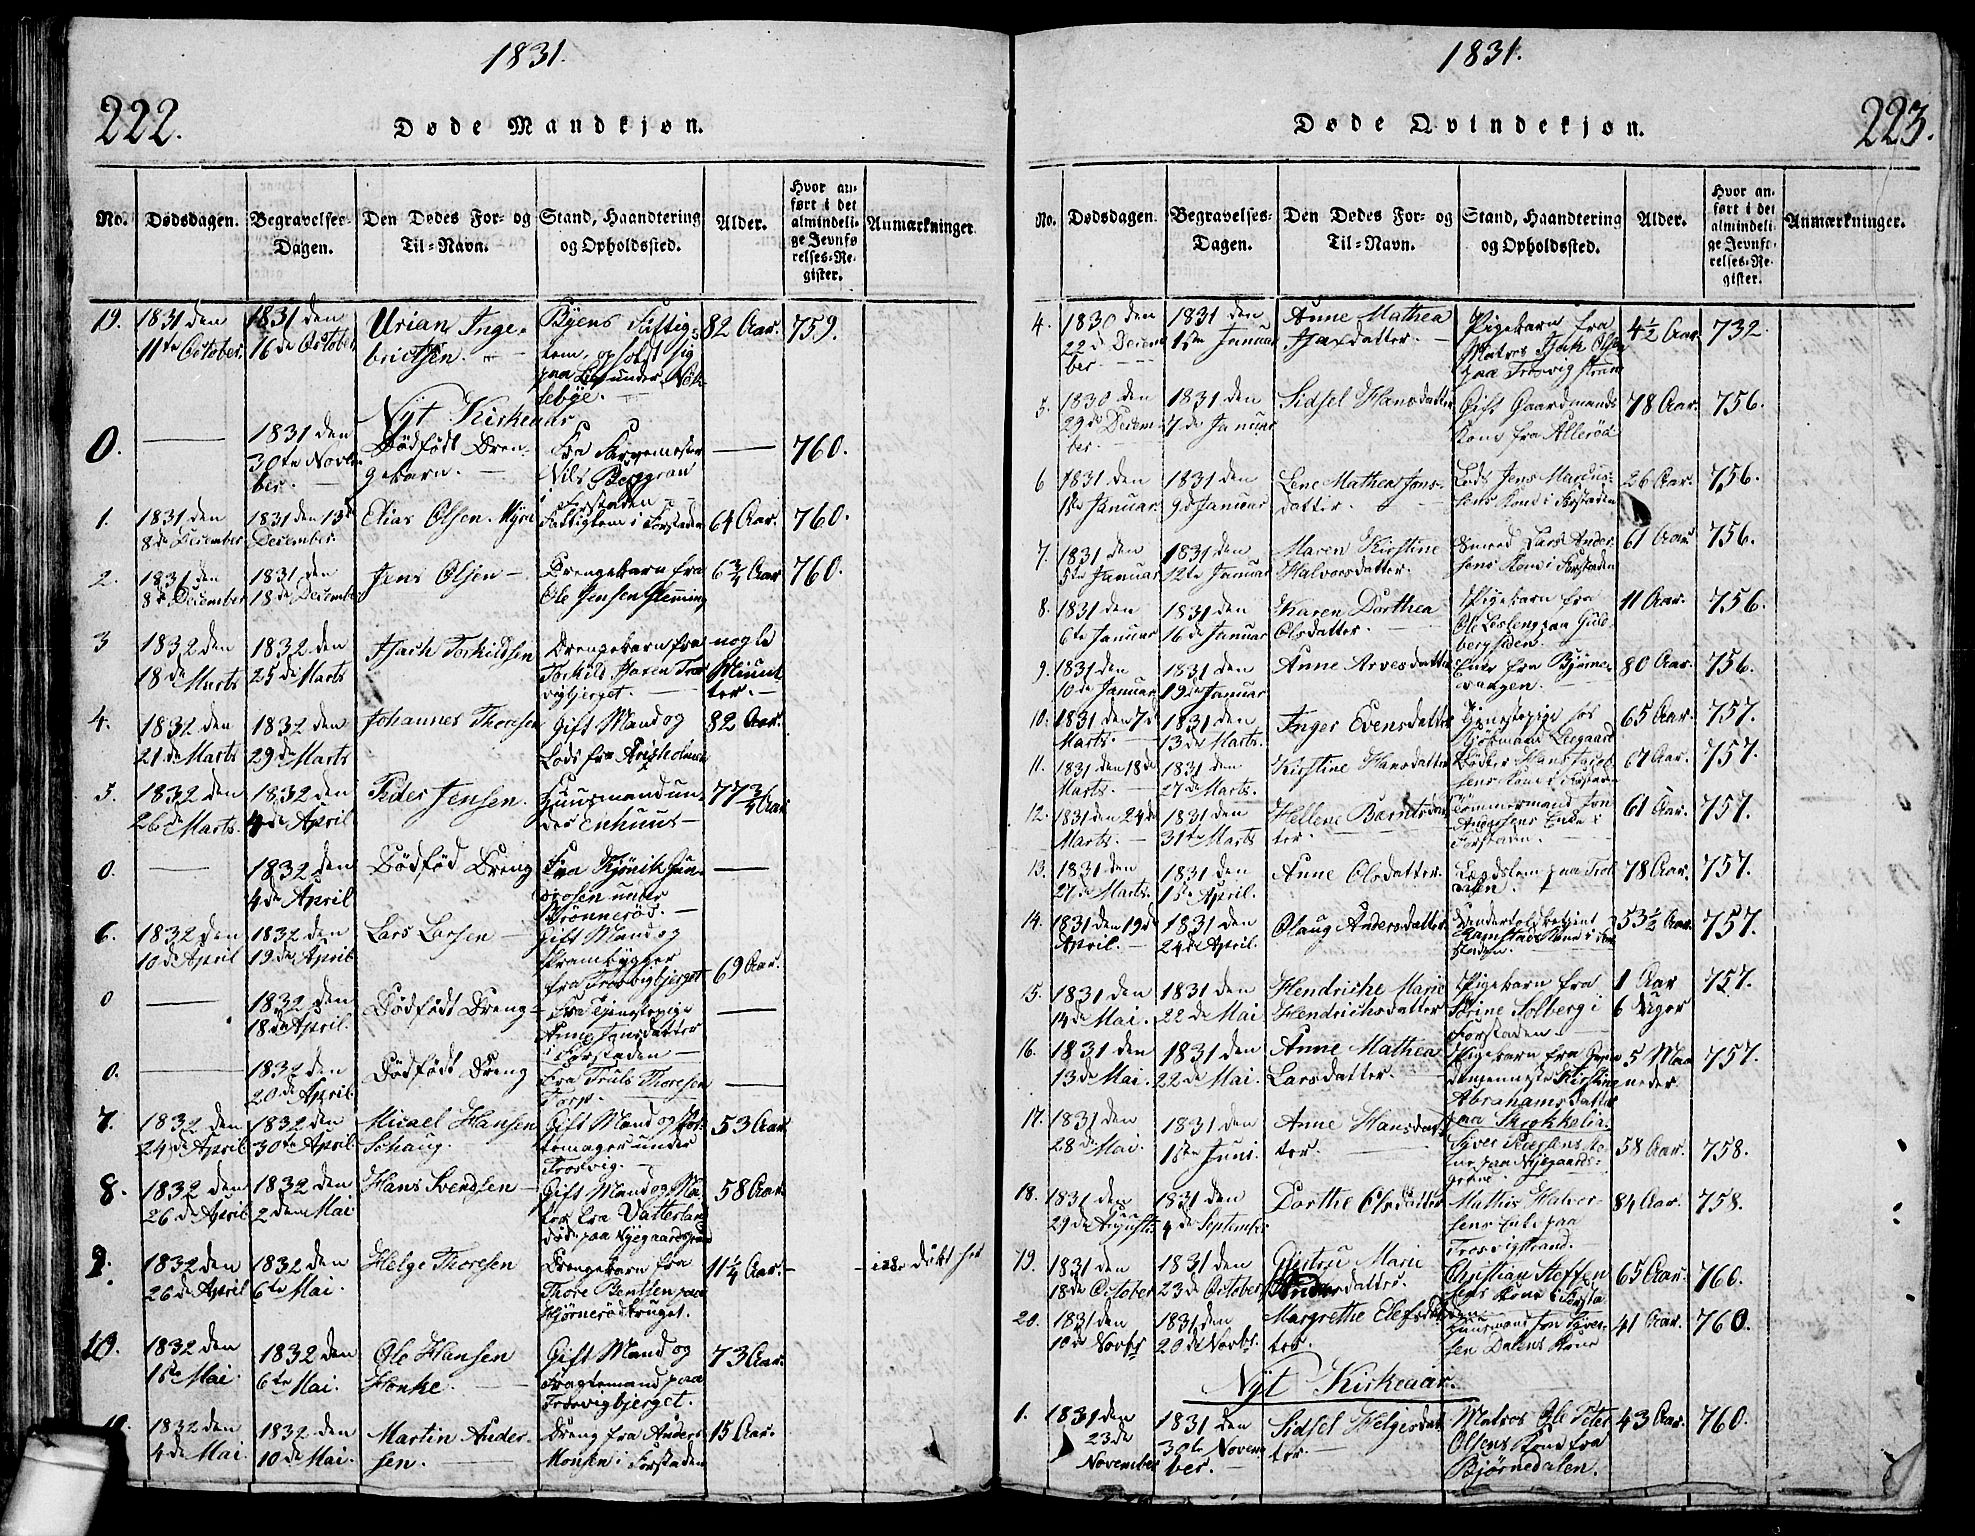 1831.
222.
Døde Mandkjøn.
No.
Dødsdagen.
Begravelses-
Dagen.
Den Dødes For- og
Til-Navn.
Stand, Haandtering
og Opholdssted.
Alder.
Hvor an-
ført i det
almindeli-
ge Jevnfø-
relses-Re-
gister.
Anmærkninger
19. 1831 den 1831 den Urian Inge- Byens 82 Aar. 759.
11te October. 16de October brictsen.
Nyt Kirkeaar
0. 1831 den Dødfødt Dren- Fra 760.
30te Novem- gebarn. Nils Berggran
ber. i Forstaden
1. 1831 den 1831 den 13de Elias Olsen Myra Fattiglem i Forstaden 64 Aar. 760.
8de December December.
2. 1831 den 1831 den Jens Olsen Drengebarn fra 6 3/4 Aar 760.
8de December 18de December Ole Jensen Flemming
3 1832 den 1832 den Isach Torkildsen Drengebarn fra nogle
18de Marts 25de Marts Torkild Minut-
ter.
4. 1832 den 1832 den Johannes Thoresen Gift Mand og 82 Aar.
21de Marts 29de Marts Lods fra
5. 1832 den 1832 den Peder Jensen. Huusmand un- 77 3/4 Aar
26de Marts. 4de April der Enhuus
0. 1832 den Dødfød Dreng Fra
4de April under
6. 1832 den 1832 den Lars Larsen Gift Mand og 69 Aar.
10de April 19de April Prambygger
fra Trosvigbjerget
0 1832 den Dødfødt Dreng Fra Tjenestepige
18de April. Anne Jansdatter
i Forstaden
0. 1832 den Dødfødt Dreng Fra Truls Thoresen
20de April. Torp.
7. 1832 den 1832 den Micael Hansen Gift Mand og 53 Aar
24de April 30te April Schaug. under
Trosvig.
8. 1832 den 1832 den Hans Svendsen Gift Mand og Ma- 58 Aar
26de April 2den Mai tros fra Vatterland
9. 1832 den 1832 den Helge Thoresen Drengebarn fra 11 1/4 Aar.
26de April 6te Mai. Thore Bentsen paa
Bjørnerødkruget.
10. 1832 den 1832 den Ole Hansen Gift Mand og 73 Aar.
1ste Mai. 6te Mai. Honke. Fragtemand paa
Trosvigbjerget.
1832 den 1832 den Martin Ander- Dreng fra Anders 15 Aar.
4de Mai 10de Mai. sen. Monsen i Forstaden
1831.
223.
Døde Qvindekjøn.
No.
Dødsdagen.
Begravelses-
Dagen.
Den Dødes For- og
Til-Navn.
Stand, Haandtering
og Opholdssted.
Alder.
Hvor an-
ført i det
almindeli-
ge Jevnfø-
relses-Re-
gister.
Anmærkninger.
4. 1830 den 1831 den Anne Mathea Pigebarn fra 4 1/2 Aar. 732.
22de Decem- 1ste Januar datter. Matros Isak Olsen
ber. paa Trosvig strand
5. 1830 den 1831 den Sidsel Hansdatter Gift Gaardmands 78 Aar. 756.
29de Decem- 7de Januar Kone fra Allerød
ber.
6 1831 den 1831 den Lene Mathea Jens- Lods Jens Marcus- 26 Aar. 756.
1ste Januar. 9de Januar datter. sens Kone i Forstaden
7. 1831 den 1831 den Maren Kirstine Smeed Lars Ander- 61 Aar 756.
5te Januar 12te Januar Halvorsdatter. sens Kone i Forstaden
8. 1831 den 1831 den Karen Dorthea Pigebarn fra 11 Aar. 756.
6te Januar 16de Januar Olsdatter. Ole paa Gud-
bergsiden.
9. 1831 den 1831 den Anne Arvesdatter Enke fra Bjørne- 80 Aar. 756.
10de Januar 19de Januar
10. 1831 den 7de 1831 den Inger Evensdatter Tjenestepige hos 65 Aar. 757.
Marts. 13de Marts. Kjøbmand
11. 1831 den 18de 1831 den Kirstine Hansdatter 757.
Marts. 27de Marts. sens Kone i
12. 1831 den 24de 1831 den Hellene Berntsdat- Tømmermand Jon 61 Aar. 757.
Marts. 31te Marts ter Enke i
Forstaden.
13. 1831 den 1831 den Anne Olsdatter. Lægdslem paa 78 Aar. 757.
27de Marts. 1ste April.
14. 1831 den 19de 1831 den Olaug Andersdatter 53 1/2 Aar. 757.
April. 24de April. Kone i For-
staden.
15. 1831 den 1831 den Hendriche Marie Pigebarn fra 1 Aar 757.
14de Mai. 22de Mai Hendrichsdatter Solberg i 6 Uger
Forstaden
16. 1831 den 1831 den Anne Mathea Pigebarn fra 5 Maa- 757.
13de Mai. 22de Mai. Larsdatter. Kirstine neder.
Abrahamsdatter
17. 1831 den 1831 den Anne Hansdat- 58 Aar. 758.
28de Mai. 1ste Juni. ter. paa Nyegaards-
18. 1831 den 1831 den Dorthe Olsdatter Mathis Halvor- 84 Aar. 758.
29de Augusti. 4de September sens Enke paa
Trosvigstrand.
19. 1831 den 1831 den Marie Christian Steffen- 65 Aar. 760.
18de October 23de October sens Kone i Forsta-
20. 1831 den 1831 den Margrethe 41 Aar. 760.
10de Novbr. 20de Novbr. ter. sen Dalens Kone
Nyt Kirkeaar.
1. 1831 den 1831 den Sidsel Helgesdat- Matros Ole Peter 43 Aar. 760.
23de 30te Novem- ter Olsens Kone fra
November ber. Bjørnedalen.